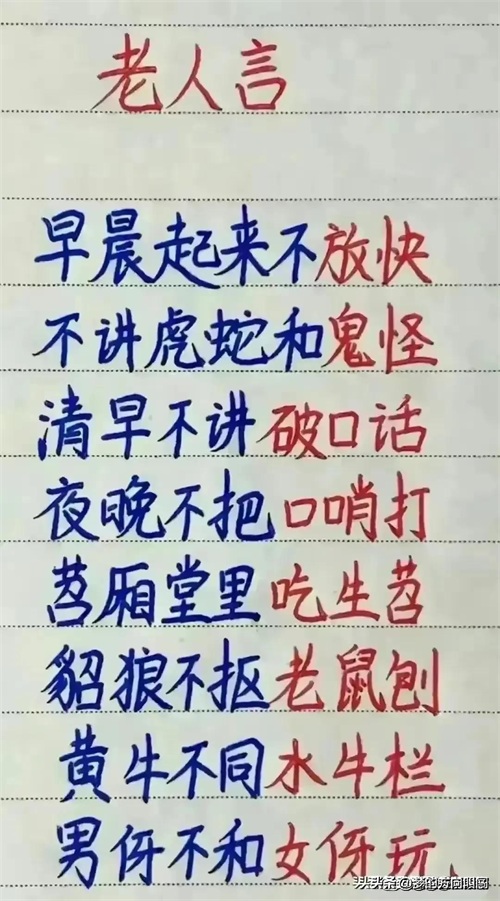 老人言
早晨起来不放快
不讲虎蛇和鬼怪
清早不讲破口话
夜晚不把口哨打
苕厢堂里吃生苕
貂狼不抠老鼠刨
黄牛不同水牛栏
男伢不和女伢玩、